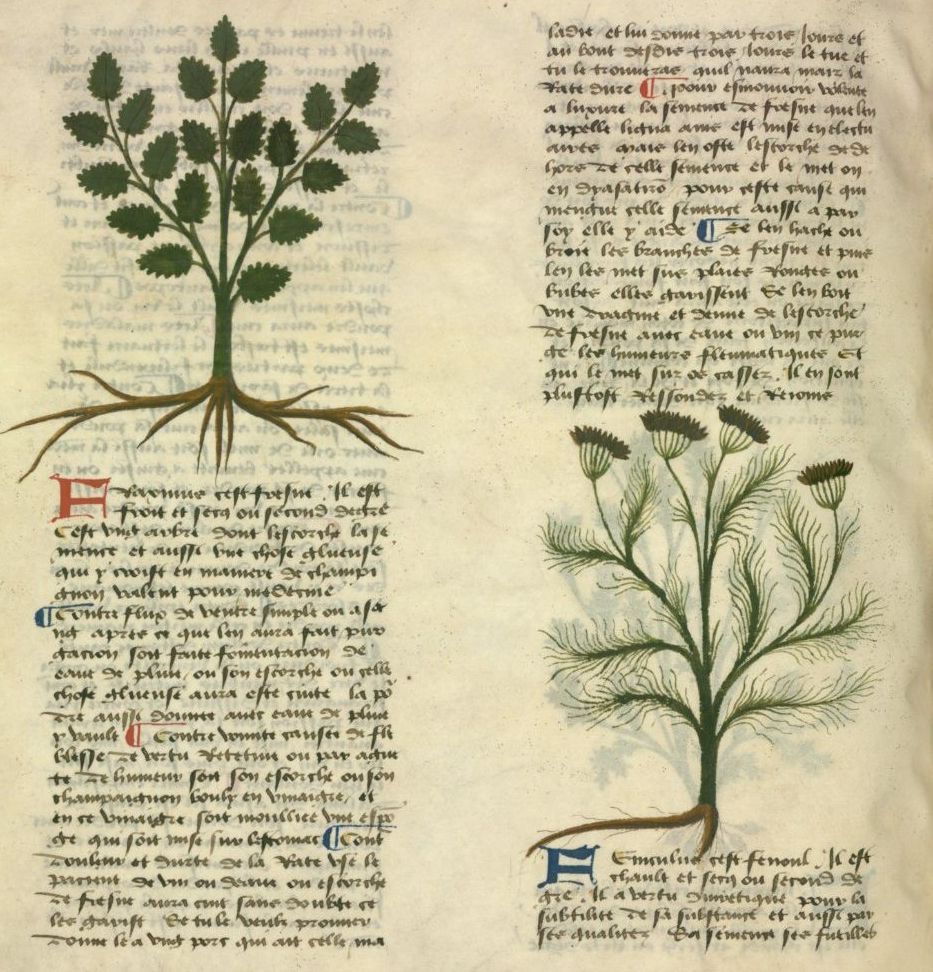 Fraxinus cest fresne. Il est
froit et secq ou second degre
Cest ung arbre dont lescorche la se
mence et aussi une chose glueuse
qui y croist en maniere de champi
gnon valent pour medecine
Contre flux de ventre simple ou a sa
ng apres ce que len aura fait pur
gacion soit faite fomentacion de
eaue de pluie, ou son escorche ou celle
chose glueuse aura este cuite la po
dre aussi donnee avec eaue de pluie
y vault Contre vomite causee de fle
blesse de vertu Retetive ou par ague
te de humeur soit son escorche ou son
champaignon bouly en vinaigre, et
en ce vinaigre soit moulliee une espo
ge qui soit mise sur lestomac Cont
douleur et durte de la Rate use le
pacient de vin ou deaue ou escorche
de fresne aura cuit sans doubte ce
les garist Se tu le veulx prouver
donne le a ung porc qui ait celle ma
ladie, et lui donne par trois Iours et
au bout desdis trois Iours le tue et
tu le trouveras quil naura mair la
Rate dure pour esmouvoir volente
a luxure la semence de fresne que len
appelle ligua avis est mise en electu
aires mais len oste lescorche de de
hors de celle semence et le met on
en dyasatiro pour ceste cause qui
mengue celle semence aussi a par
soy elle y aide Se len hache ou
broie les branches de fresne et puis
len les met sus plaies Rouges ou
bubes elles garissent Se len boit
une dragme et demie de lescorche
de fresne avec eaue ou vin ce pur
ge les humeurs fleumatiques Et
qui le met sur os cassez, Il en sont
plustost Ressoudez et Reioins
Feniculus cest fenoul. Il est
chault et secq ou second de
gre. Il a vertu diuretique pour la
subtilite de sa substance et aussi par
ses qualitez Sa semence ses fueilles